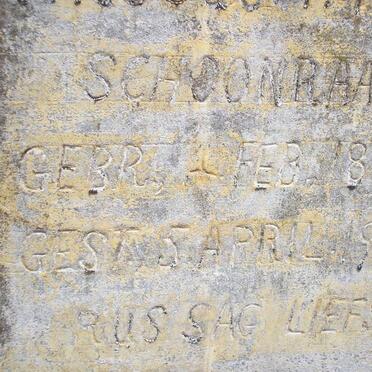 SCHOONRAA
GEBR. 4 FEB. 18
GEST. 5 APRIL 19
RUS SAG LIEF